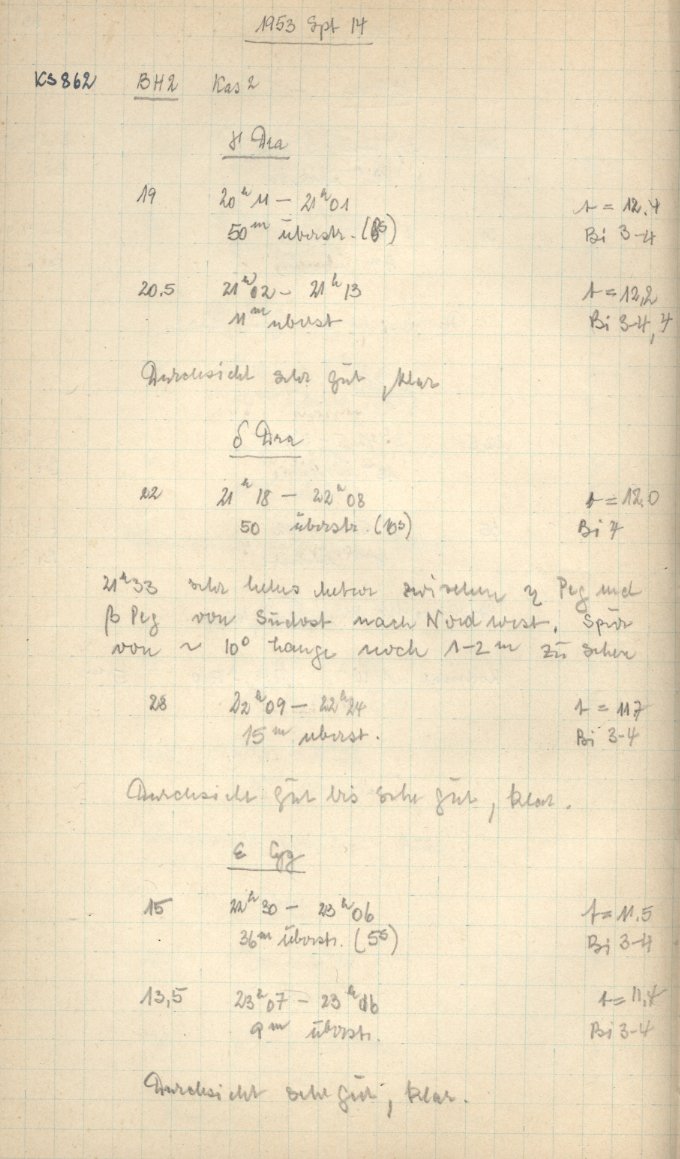 1953 Spt 14
KS862 BH2 Kas 2
Dra
19 20ʰ 11 – 21ʰ 01 t = 12.4
50ᵐ überstr. Bi 3-4
20,5 21ʰ 02 – 21ʰ 13 t = 12,2
11ᵐ überst Bi 3-4, 4
Durchsicht sehr gut, klar
δ Dra
22 21ʰ 18 – 22ʰ 08 t = 12.0
50 überstr. (10ˢ) Bi 4
21ʰ33 sehr helles Meteor zwischen η Peg und
β Peg von Südost nach Nordwest. Spur
von ~ 10° Länge noch 1-2ᵐ zu sehen
28 22ʰ 09 – 22ʰ 24 t = 11,7
15ᵐ überst. Bi 3-4
Durchsicht gut bis sehr gut, klar.
ε Cyg
15 22ʰ 30 – 23ʰ 06 t = 11.5
36ᵐ überstr. (5ˢ) Bi 3-4
13,5 23ʰ 07 – 23ʰ 16 t = 11,4
9ᵐ überstr. Bi 3-4
Durchsicht sehr gut, klar.